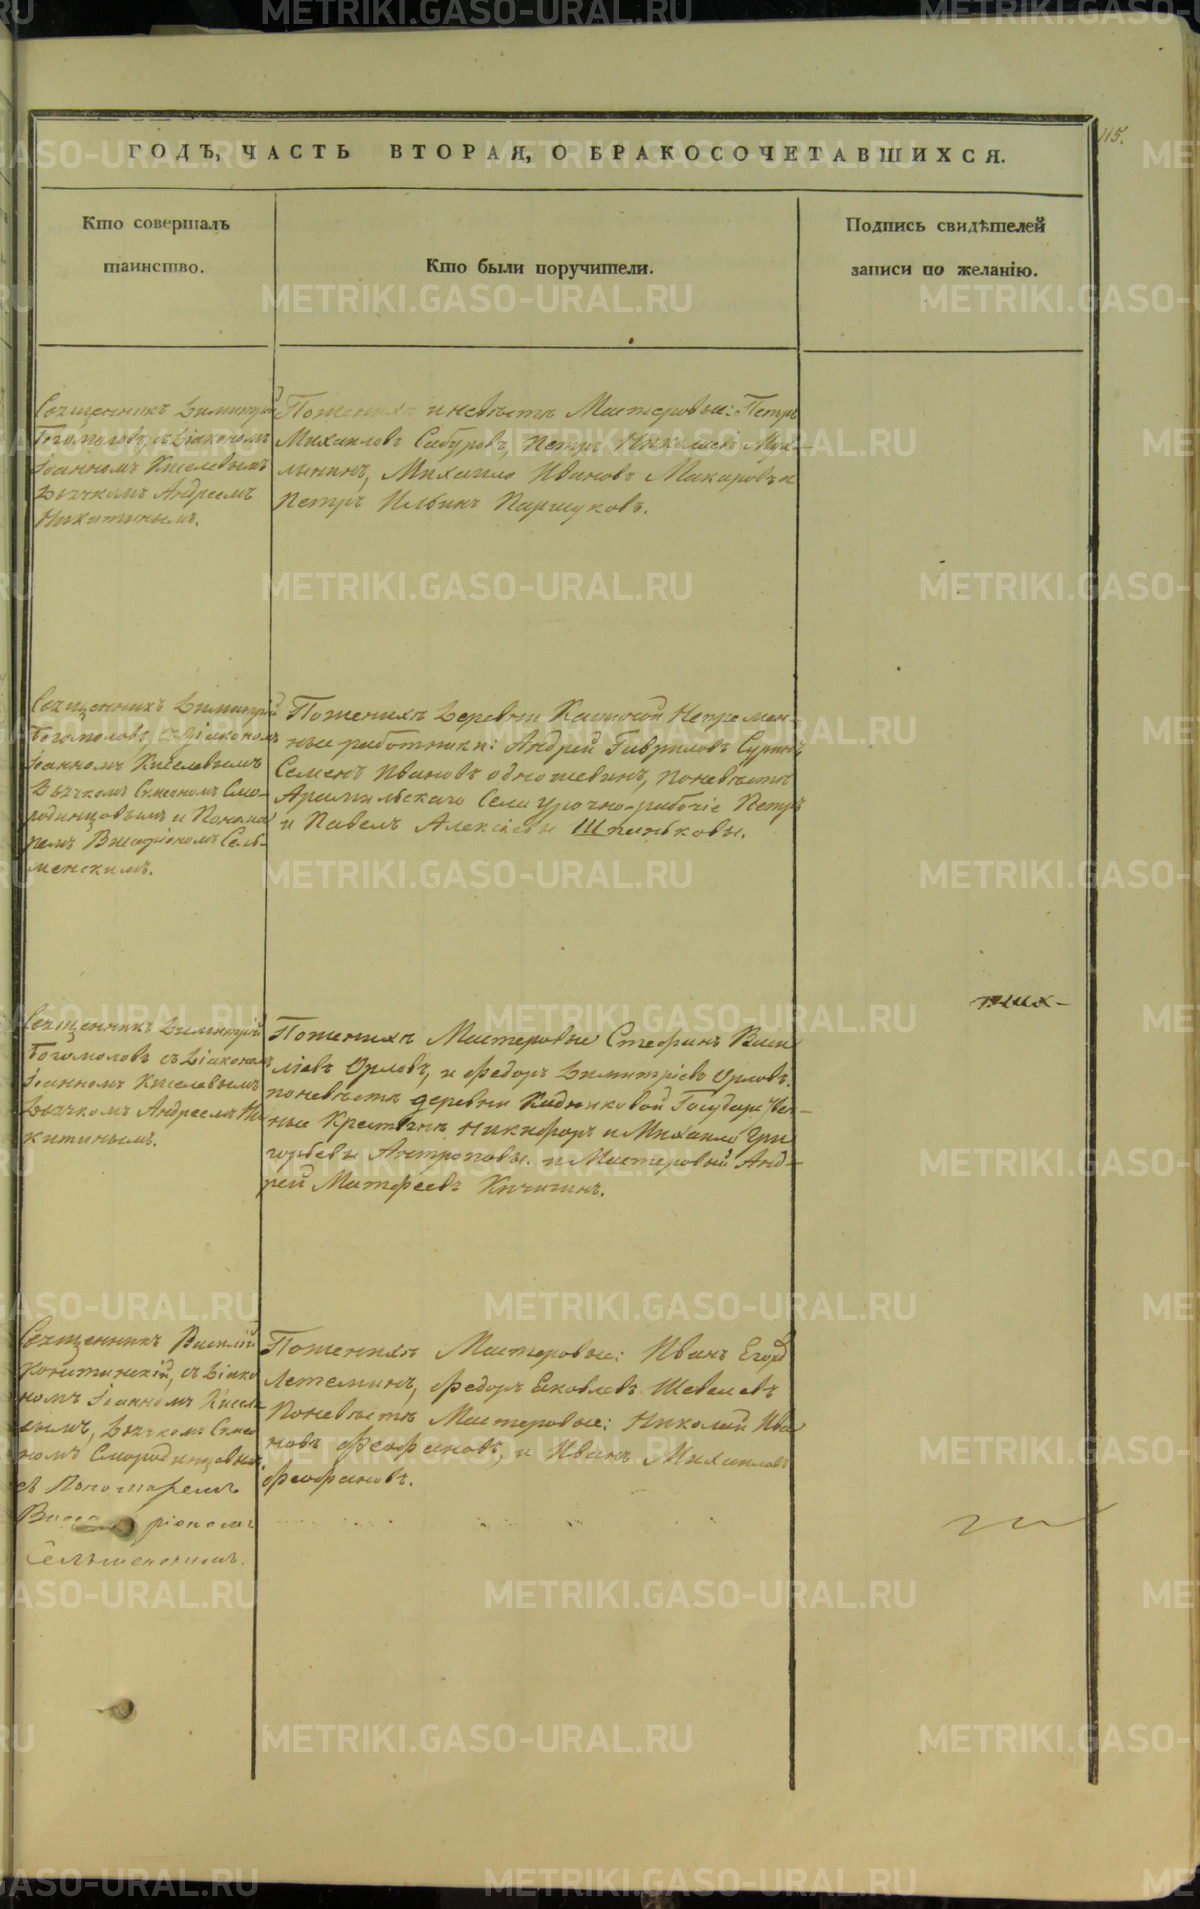 115.
ГОДЪ, ЧАСТЬ ВТОРАЯ, О БРАКОСОЧЕТАВШИХСЯ.
Кто совершалъ
таинство.
Кто были поручители.
Подпись свидѣтелей
записи по желанію.
Священникъ Димитрій
Богомоловъ, съ Діакономъ
Іоанномъ Киселевымъ
Дьячкомъ Андреемъ
Никитинымъ.
По женихѣ и невѣстѣ Мастеровые: Петръ
Михаиловъ Сабуровъ, Петръ Николаевъ
Михайло Ивановъ Макаровъ и
Петръ Ильинъ Паршуковъ.
Священникъ Димитрій
Богомоловъ, съ Діакономъ
Іоанномъ Киселевымъ
Дьячкомъ Симеономъ Смо-
родинцовымъ и Понома
ремъ Виссаріономъ Сель-
менскимъ.
По женихѣ Деревни Непремен-
ные работники: Андрей Гавриловъ
Семенъ Ивановъ Одношевинъ, по невѣстѣ
Арамильскаго Села урочно-рабочіе Петръ
и Павелъ Алексѣевы Шпаньковы.
Священникъ Димитрій
Богомоловъ съ Діакономъ
Іоанномъ Киселевымъ
Дьячкомъ Андреемъ Ни
китинымъ.
По женихѣ Мастеровые Стефанъ Васи
ліевъ Орловъ, и Федоръ Димитріевъ Орловъ.
по невѣстѣ деревни Кадниковой Государствен-
ные Крестьяне Никифоръ и Михаило Гри
горьевы Антроповы. и Мастеровый Анд-
рей Матфеевъ Кичигинъ.
Священникъ Василій
съ Діако
номъ Іоанномъ Кисел-
евымъ, Дьячкомъ Симео
номъ Смородинцовымъ,
съ Пономаремъ
Виссаріономъ
Сельменскимъ.
По женихѣ Мастеровые: Иванъ Егоръ
Летеминъ, Федоръ Яковлевъ Шевелевъ
По невѣстѣ Мастеровые: Николай Ива
новъ Феофановъ, и Иванъ Михаиловъ
Феофановъ.
METRIKI.GASO-URAL.RU